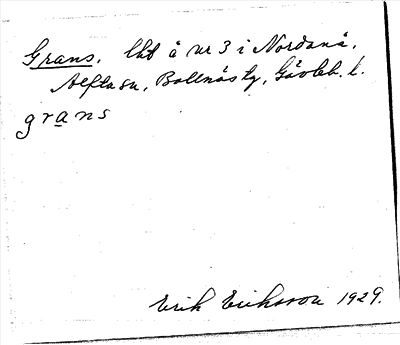 Grans, lht å nr 3 i Nordanå,
Alfta sn, Bollnäs tg, Gävleb. l.
grans
Erik Eriksson 1929.